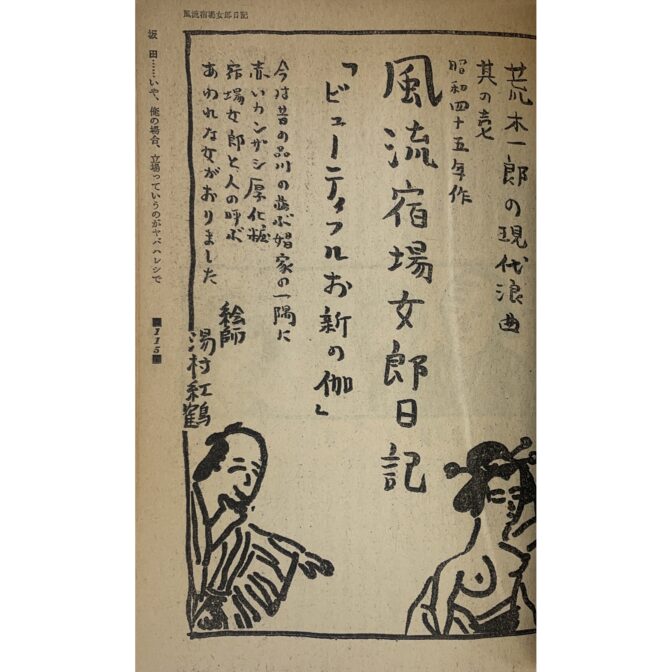 荒木一郎の現代浪曲
其の壱
昭和四十五年作
風流宿場女郎日記
「ビューティフルお新の伽」
今は昔の品川の並ぶ娼家の一隅に
赤いカンザシ厚化粧
宿場女郎と人の呼ぶ
あわれな女がおりました
絵師
湯村紅鶴
風流宿場女郎日記
坂田……いや、俺の場合、立場っていうのがヤバハレシで
115